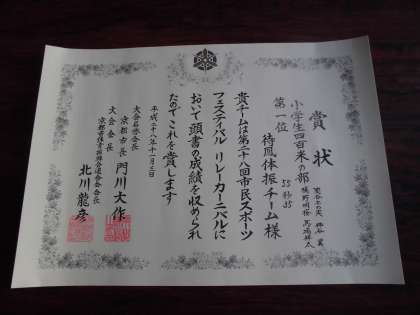 賞状
小学生四百米の部
第一位
55秒35
待鳳体振チーム様
貴チームは第二十八回市民スポーツ
フェスティバル リレーカーニバルに
おいて頭書の成績を収められ
たので これを賞します
平成二十八年十一月三日
大会名誉会長
京都市長 門川大作
大会会長
京都市体育振興会連合会会長
北川龍彦